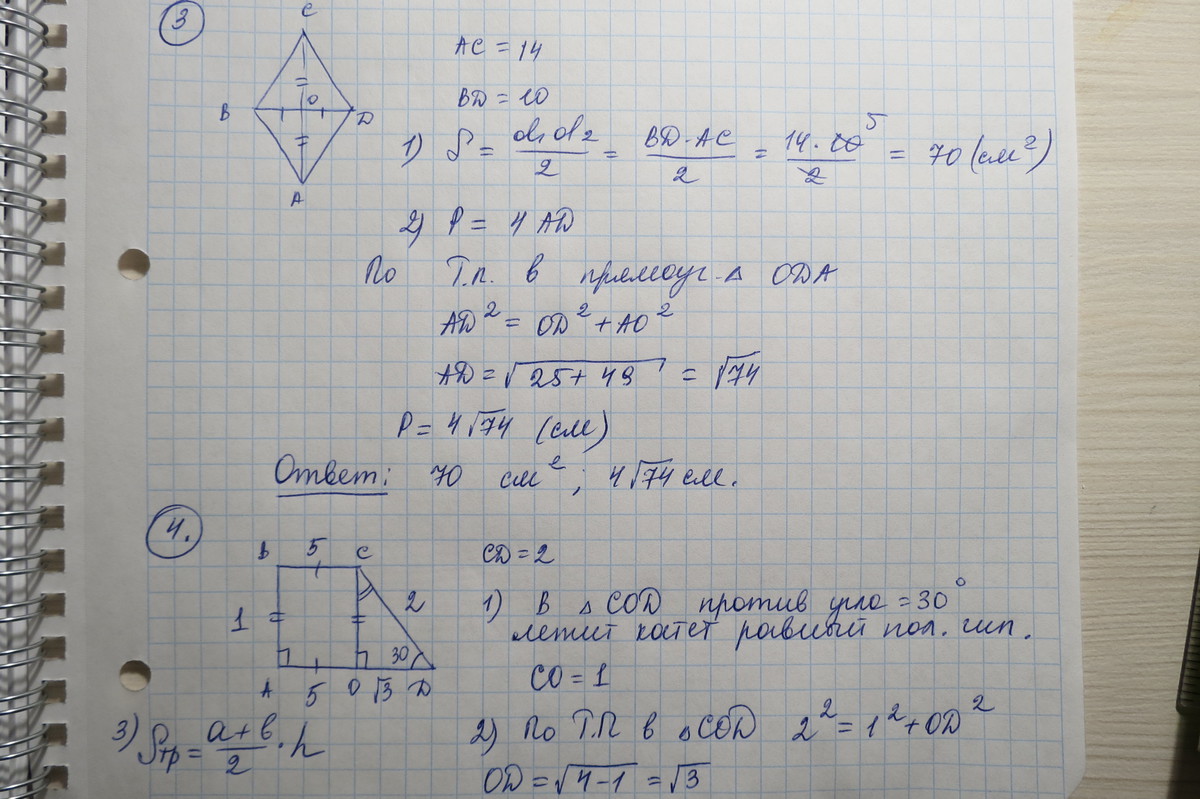 3
C
B
O
D
A
AC = 14
BD = 10
1) S = d₁d₂/2 = BD·AC/2 = 14·10⁵/2 = 70 (см²)
2) P = 4 AD
По Т.п. в прямоуг. Δ ODA
AD² = OD² + AO²
AD = √25 + 49 = √74
P = 4√74 (см)
Ответ: 70 см²; 4√74 см.
4.
B 5 C
1
2
30
A 5 O √3 D
CD = 2
1) В Δ COD против угла = 30°
лежит катет равный пол. гип.
CO = 1
2) По Т.П в Δ COD 2² = 1² + OD²
OD = √4 - 1 = √3
3) Sтр = a + b/2 · h